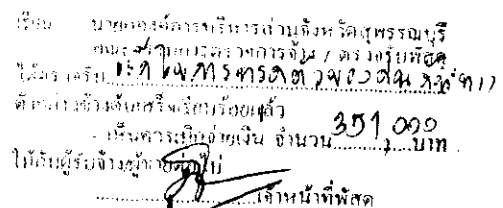 เรียน นายกองค์การบริหารส่วนจังหวัดสุพรรณบุรี
คณะกรรมการตรวจการจ้าง / ตรวจรับพัสดุ
ได้ตรวจรับ
ดังกล่าวข้างต้นเสร็จเรียบร้อยแล้ว
- เห็นควรเบิกจ่ายเงิน จำนวน 351,000 บาท
ให้กับผู้รับจ้าง/ผู้ขายต่อไป
เจ้าหน้าที่พัสดุ